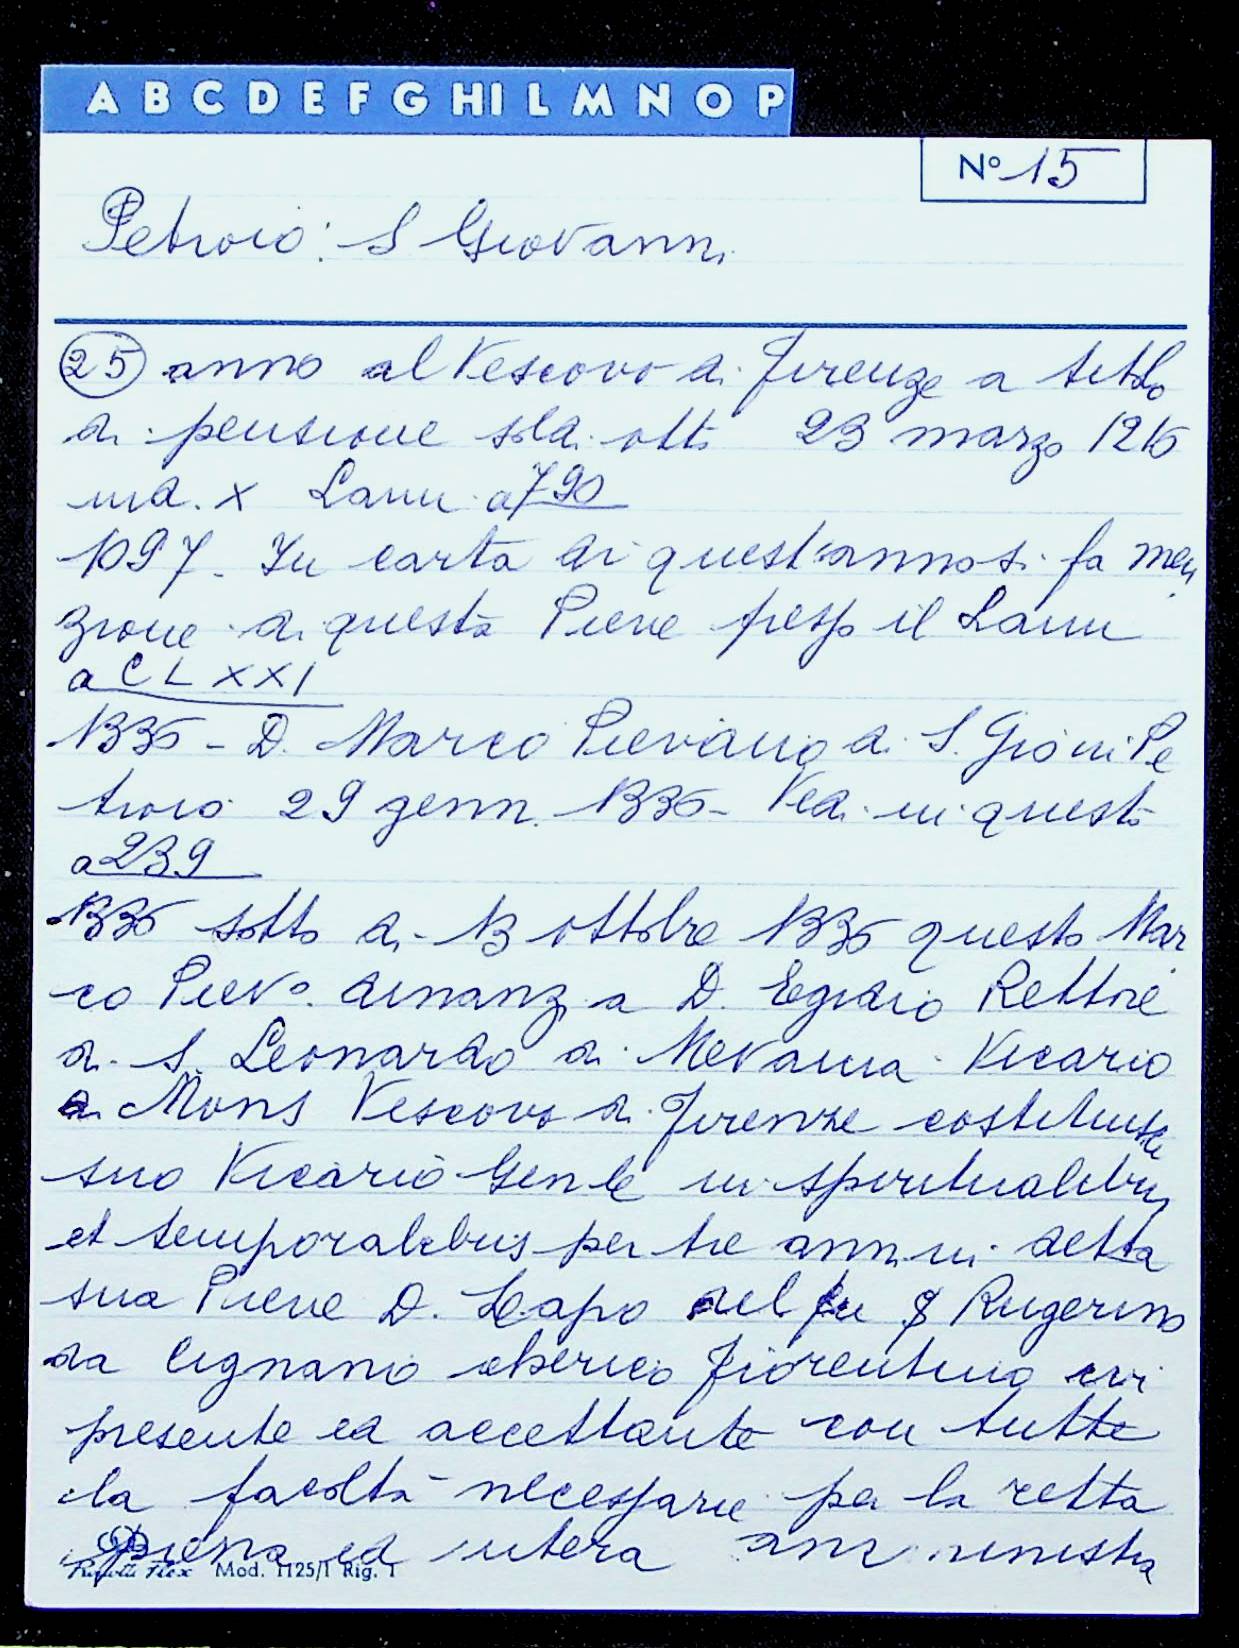 A B C D E F G HI L M N O P
N° 15
Petroio: S Giovanni
25 anno al Vescovo di Firenze a titolo
di pensione soldi otto 23 marzo 1216
ind. X Lami a 790
1097. In carta di quest'anno si fa men
zione di questa Pieve presso il Lami
a CLXXI
1336 - D. Marco Pievano di S. Gio in Pe
troio 29 genn. 1336 - Vedi in questo
a 239
1336 sotto di 13 ottobre 1336 questo Mar
co Piev° dinanzi a D. Egidio Rettore
di S. Leonardo di Vicario
di Mons Vescovo di Firenze costituisce
suo Vicario Genle in spiritualibus
et temporalibus per tre anni in detta
sua Pieve D. Lapo del fu Rugerino
da Cignano cherico fiorentino ivi
presente ed accettante con tutte
la facoltà necessarie per la retta
piena ed intera amministra
Mod. 1125/1 Rig. 1